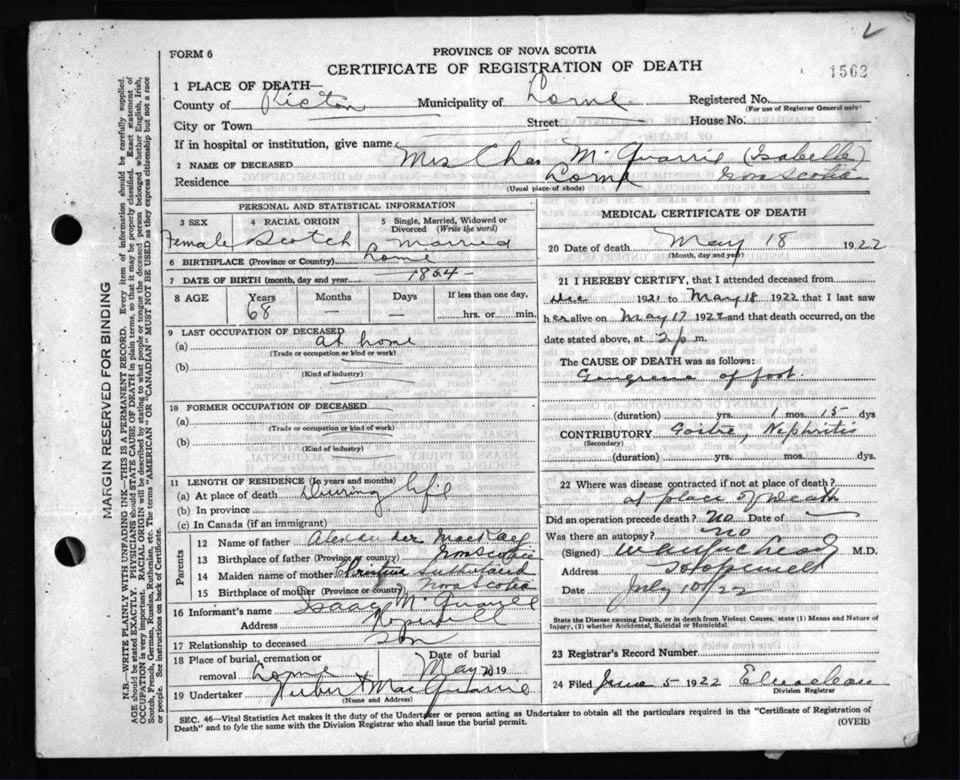 FORM 6
PROVINCE OF NOVA SCOTIA
CERTIFICATE OF REGISTRATION OF DEATH
1562
1 PLACE OF DEATH—
County of Pictou Municipality of Lorne Registered No.
(For use of Registrar General only)
City or Town Street House No.
If in hospital or institution, give name
2 NAME OF DECEASED Mrs Chas McQuarrie (Isabella)
Residence Lorne Nova Scotia
(Usual place of abode)
PERSONAL AND STATISTICAL INFORMATION
3 SEX Female
4 RACIAL ORIGIN Scotch
5 Single, Married, Widowed or Divorced (Write the word) Married
6 BIRTHPLACE (Province or Country) Lorne
7 DATE OF BIRTH (month, day and year) 1854 -
8 AGE Years 68 Months — Days — If less than one day, hrs. or min.
9 LAST OCCUPATION OF DECEASED
(a) at home
(Trade or occupation or kind or work)
(b)
(Kind of industry)
10 FORMER OCCUPATION OF DECEASED
(a)
(Trade or occupation or kind of work)
(b)
(Kind of industry)
11 LENGTH OF RESIDENCE (In years and months)
(a) At place of death During life
(b) In province
(c) In Canada (if an immigrant)
Parents
12 Name of father Alexander MacKay
13 Birthplace of father (Province or country) Nova Scotia
14 Maiden name of mother Christina Sutherland
15 Birthplace of mother (Province or country) Nova Scotia
16 Informant's name Isaac McQuarrie
Address Hopewell
17 Relationship to deceased Son
18 Place of burial, cremation or removal Lorne Date of burial May 20 19
19 Undertaker MacQuarrie
(Name and Address)
MEDICAL CERTIFICATE OF DEATH
20 Date of death May 18 1922
(Month, day and year)
21 I HEREBY CERTIFY, that I attended deceased from
Dec 1921 to May 18 1922 that I last saw
her alive on May 17 1922 and that death occurred, on the
date stated above, at 2 p m.
The CAUSE OF DEATH was as follows:
Gangrene of foot.
(duration) yrs. 1 mos. 15 dys
CONTRIBUTORY Goitre, Nephritis
(Secondary)
(duration) yrs. mos. dys.
22 Where was disease contracted if not at place of death?
at place of Death
Did an operation precede death? No Date of —
Was there an autopsy? no
(Signed) M.D.
Address Hopewell
Date July 10/22
State the Disease causing Death, or in death from Violent Causes, state (1) Means and Nature of
Injury, (2) whether Accidental, Suicidal or Homicidal.
23 Registrar's Record Number
24 Filed June 5 1922
Division Registrar
SEC. 46—Vital Statistics Act makes it the duty of the Undertaker or person acting as Undertaker to obtain all the particulars required in the "Certificate of Registration of
Death" and to fyle the same with the Division Registrar who shall issue the burial permit. (OVER)
MARGIN RESERVED FOR BINDING
N.B.—WRITE PLAINLY WITH UNFADING INK—THIS IS A PERMANENT RECORD. Every item of information should be carefully supplied.
AGE should be stated EXACTLY. PHYSICIANS should STATE CAUSE OF DEATH in plain terms, so that it may be properly classified. Exact statement of
OCCUPATION is very important. RACIAL ORIGIN will be described by stating to what people or tongue the deceased person belonged whether English, Irish,
Scotch, French, German, Russian, Ruthenian, etc. The terms "AMERICAN" OR "CANADIAN" MUST NOT BE USED as they express citizenship but not a race
or people. See instructions on back of Certificate.